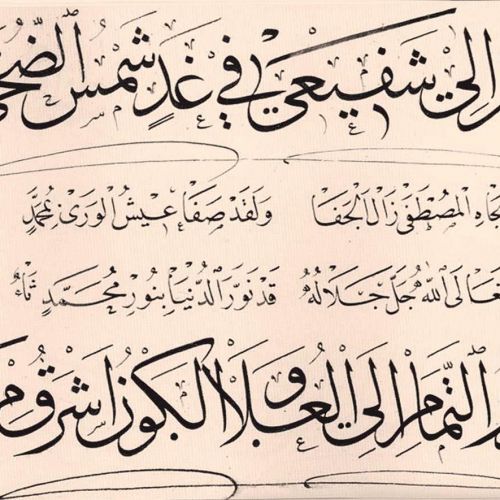 الي شفيعي في غد شمس الضحى
جاه المصطفى زال الجفا ولقد صفا عيش الورى بمحمد
تعالى الله جل جلاله قد نور الدنيا بنور محمد
التمام الى العلا الكون اشرق